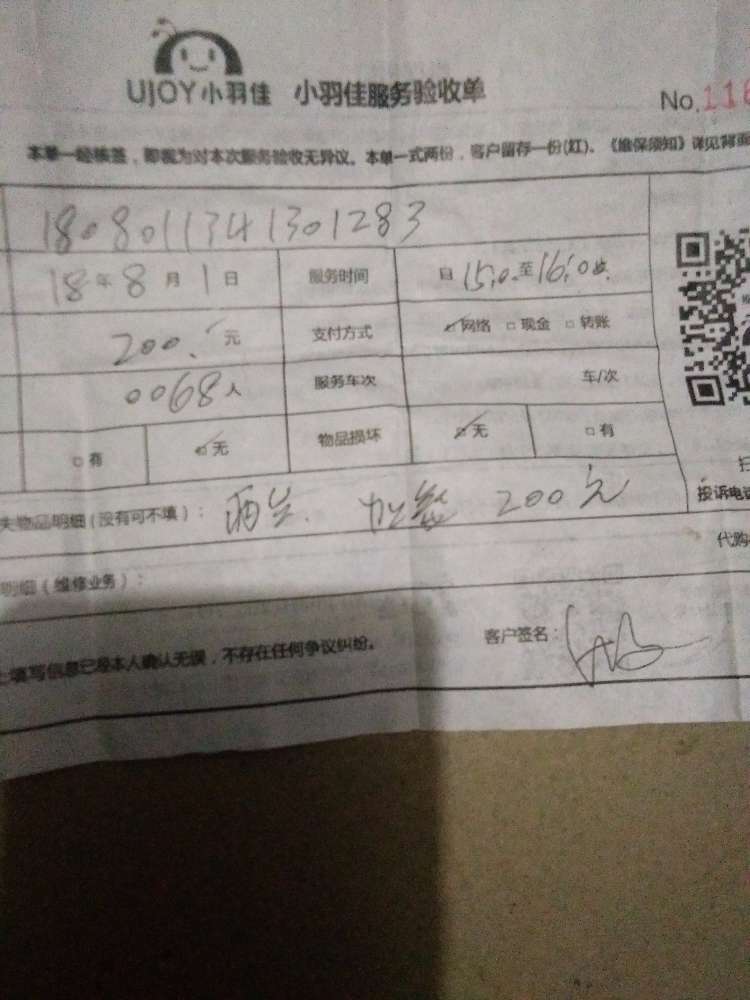 UJOY小羽佳 小羽佳服务验收单
No.116
本单一经核签，即视为对本次服务验收无异议。本单一式两份，客户留存一份(红)、《维保须知》详见背面
1808011341301283
18年8月1日 服务时间 自15:0至16:0
200.元 支付方式 网络 现金 转账
0068人 服务车次 车/次
有 无 物品损坏 无 有
投诉电话
失物品明细（没有可不填）： 200元
代购
明细（维修业务）：
上填写信息已经本人确认无误，不存在任何争议纠纷。 客户签名：